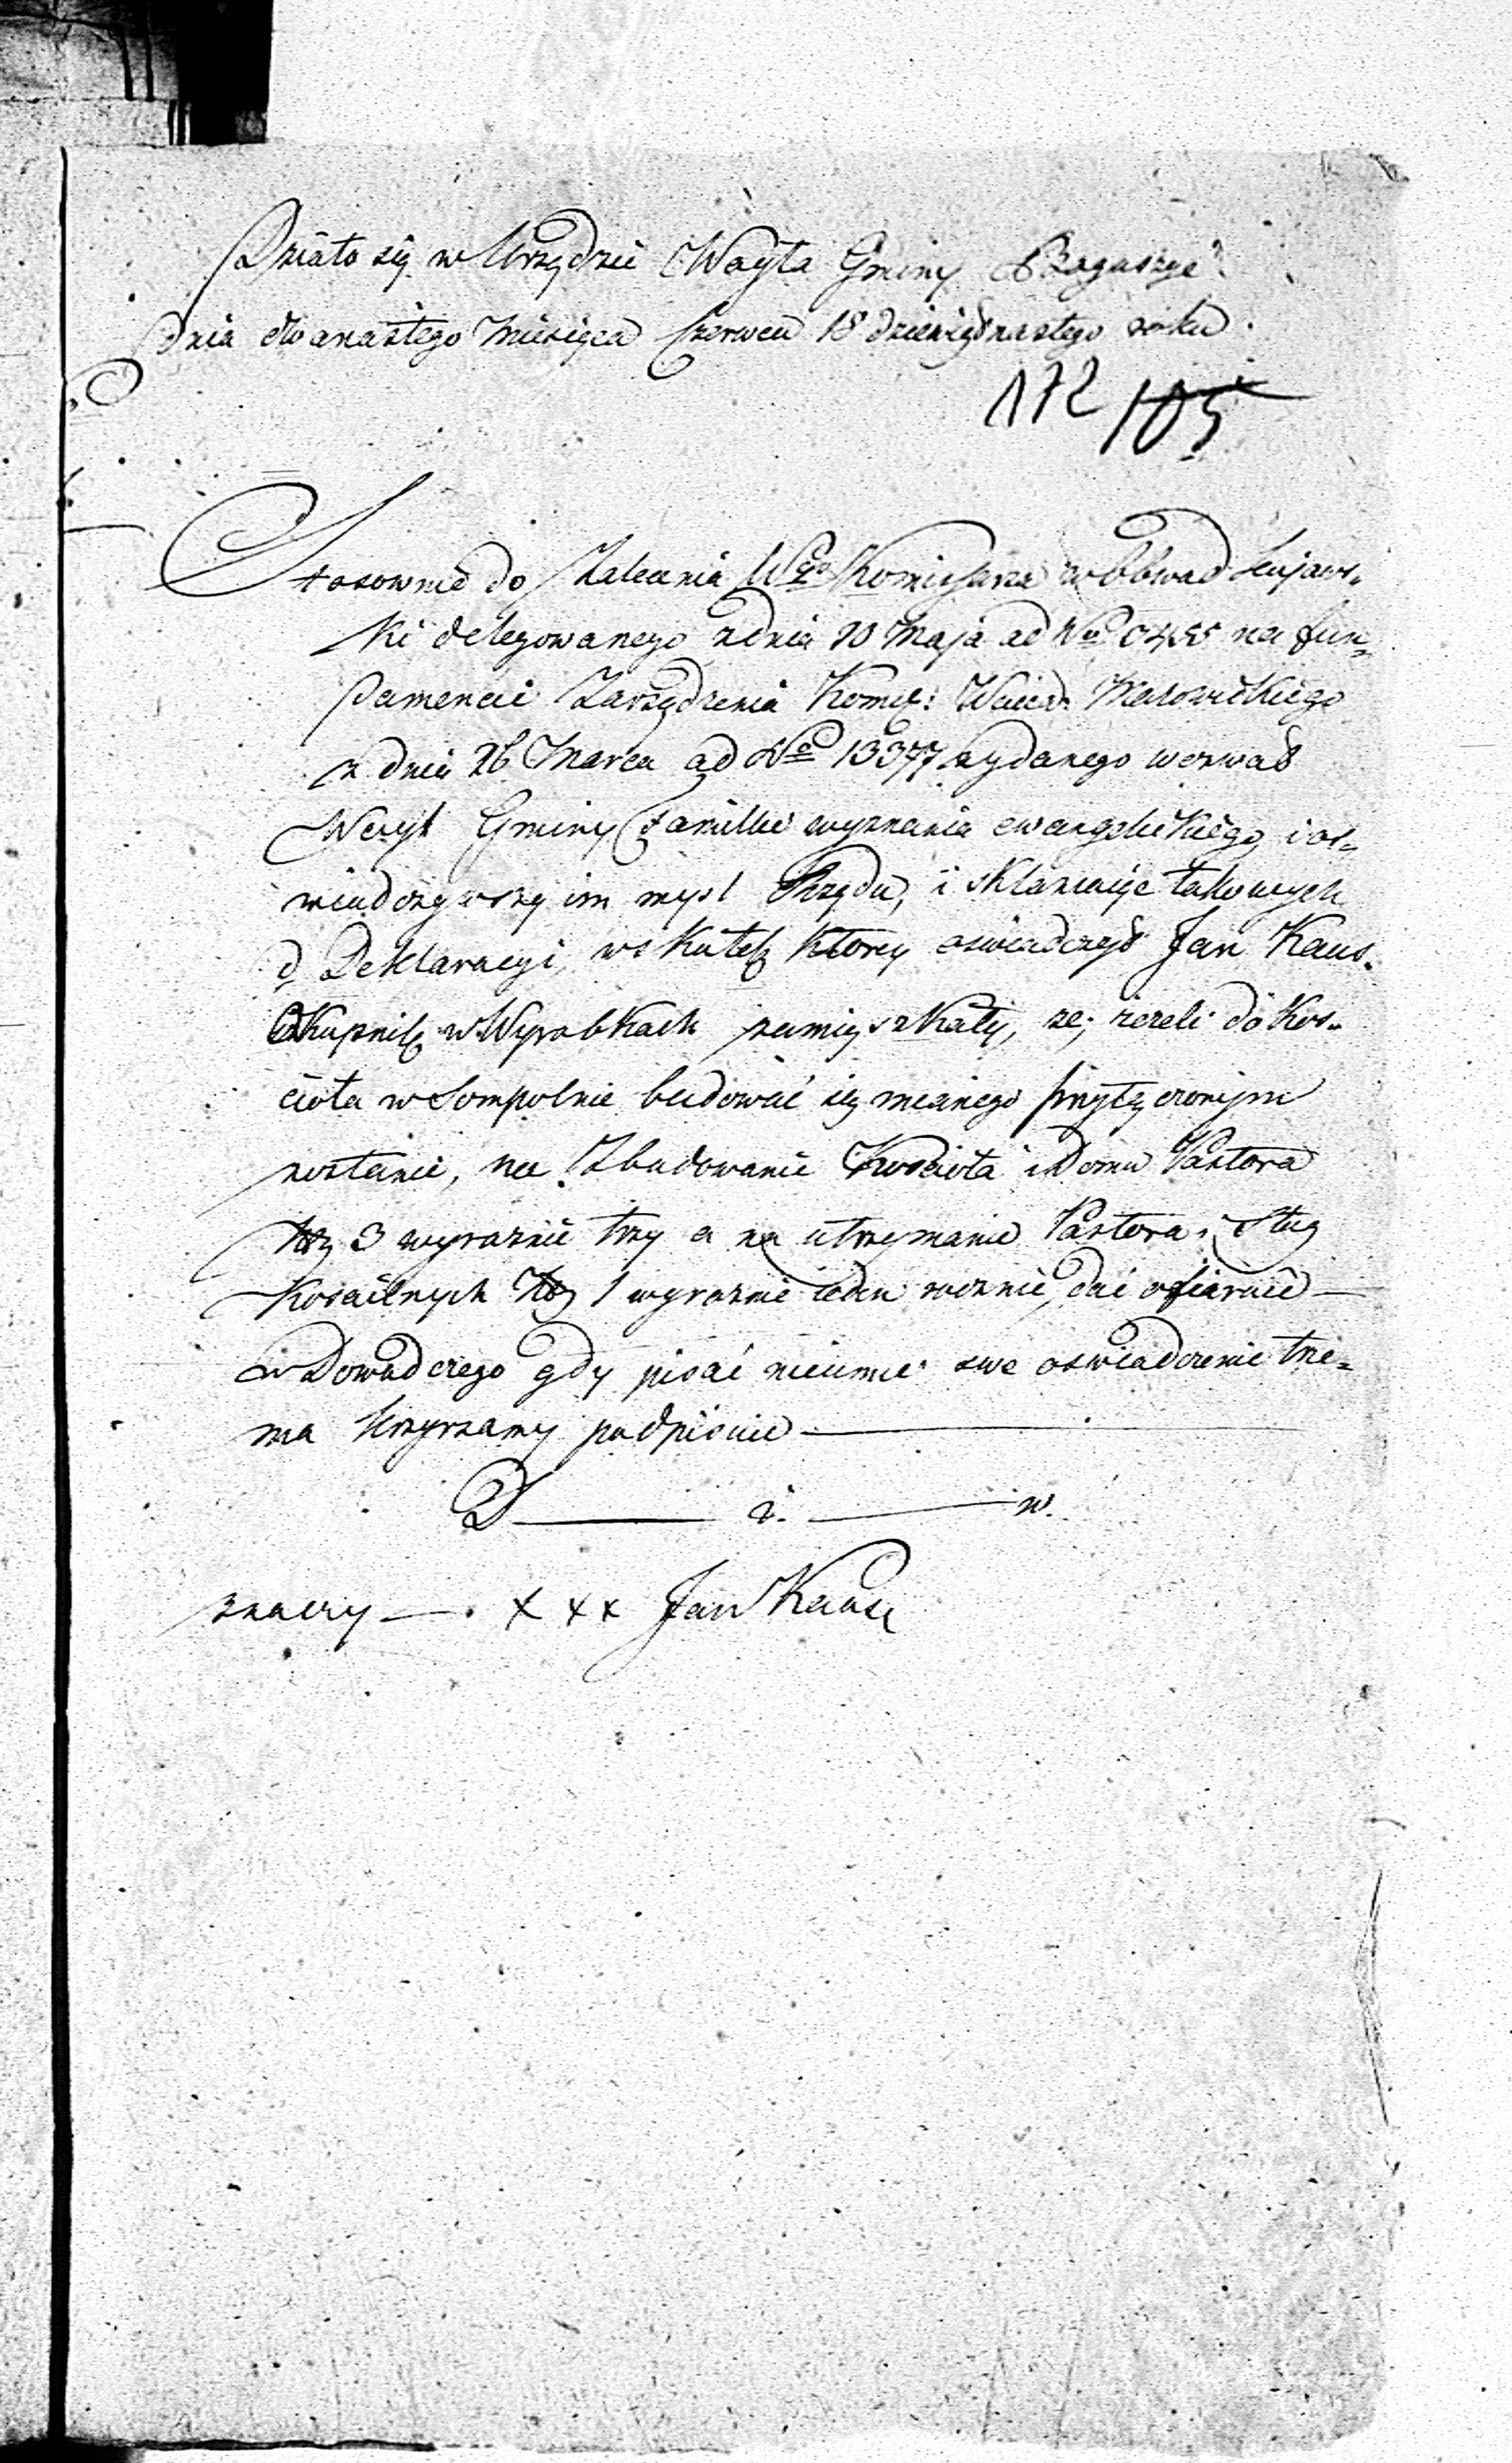 Działo się w Urzędzie Woyta Gminy
dnia dwanastego Miesiąca Czerwca 18 dziewiętnastego roku.
172 105
Stosownie do Zalecenia Wgo Kommissarza w Obwod Kujaws-
ki delegowanego z dnia 20 Maja ad Nro na fun-
damencie Zarządzenia Komis: Woiew. Mazowieckiego
z dnia 26 Marca ad Nro 13377 wydanego wezwał
Woyt Gminy Familie wyznania ewangelickiego i os-
wiadczywszy im mysl Rządu, i skłaniaiąc takowych
d Deklaracyi, wskutek ktorey oswiadczył Jan Kaus-
Okupnik w Wyrobkach zamięszkały, ze; iezeli do Kos-
cioła w Sompolnie budować się mianego przyłączonym
zostanie, na Zbudowanie Kościoła i Domu Pastora
3 wyraznie trzy a na utrzymanie Pastora i Sług
Koscielnych 1 wyraznie ieden rocznie, dać ofiaruie —
w Dowod czego gdy pisać nieumie swe oswiadczenie trze-
ma Krzyzamy podpisuie —
D — i. — w.
znaczy —. x x x Jan